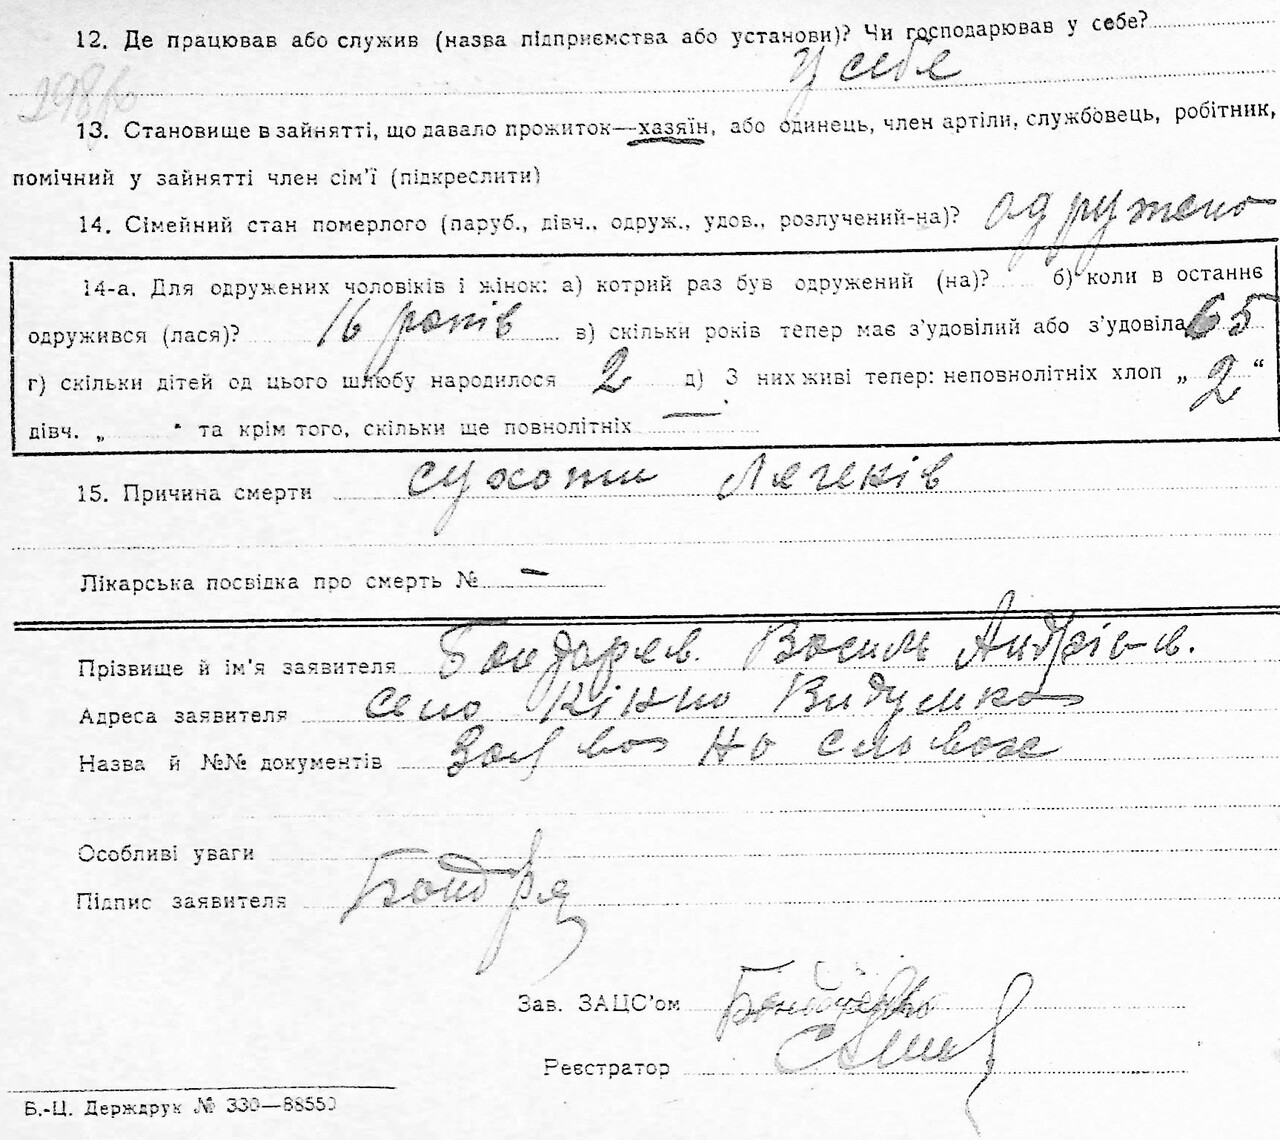 12. Де працював або служив (назва підприємства або установи)? Чи господарював у себе?
у себе
13. Становище в зайнятті, що давало прожиток—хазяїн, або одинець, член артіли, службовець, робітник,
помічний у зайнятті член сім'ї (підкреслити)
14. Сімейний стан померлого (паруб., дівч., одруж., удов., розлучений-на)? одружено
14-а. Для одружених чоловіків і жінок: а) котрий раз був одружений (на)? б) коли в останнє
одружився (лася)? 16 років в) скільки років тепер має з'удовілий або з'удовіла 65
г) скільки дітей од цього шлюбу народилося 2 д) З них живі тепер: неповнолітніх хлоп „ 2 “
дівч. „ “ та крім того, скільки ще повнолітніх —
15. Причина смерти сухоти Легенів
Лікарська посвідка про смерть № –
Прізвище й ім'я заявителя Бондарев. Василь Андрі-в.
Адреса заявителя село Видумка
Назва й №№ документів на словах
Особливі уваги
Підпис заявителя
Зав. ЗАЦС'ом
Реєстратор
Б.-Ц. Держдрук № 330—88550